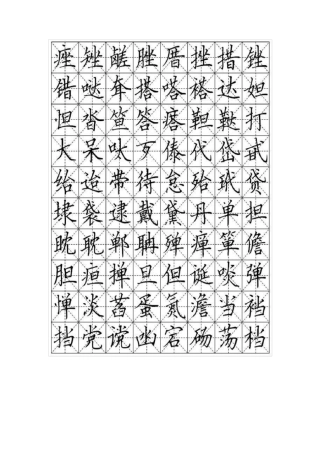 痤 矬 鹾 脞 厝 挫 措 锉
错 哒 耷 搭 嗒 褡 达 妲
怛 沓 笪 答 瘩 靼 鞑 打
大 呆 呔 歹 傣 代 岱 甙
绐 迨 带 待 怠 殆 玳 贷
埭 袋 逮 戴 黛 丹 单 担
眈 耽 郸 聃 殚 瘅 箪 儋
胆 疸 掸 旦 但 诞 啖 弹
惮 淡 萏 蛋 氮 澹 当 裆
挡 党 谠 凼 宕 砀 荡 档